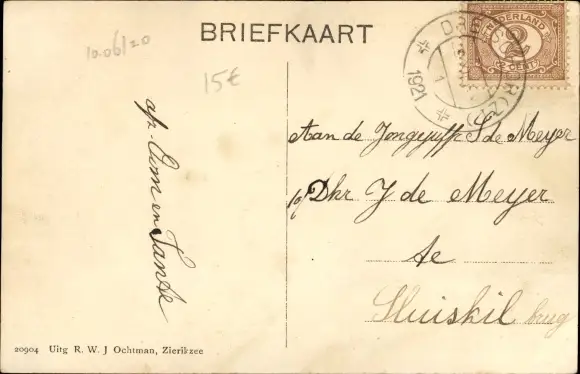 BRIEFKAART
10.06/20
15€
NEDERLAND
2
2 CENT
1921
afz. Oom en Tante
Aan de Jongejuffr S de Meyer
p/ Dhr J de Meyer
te
Sluiskil brug
20904 Uitg R. W. J Ochtman, Zierikzee